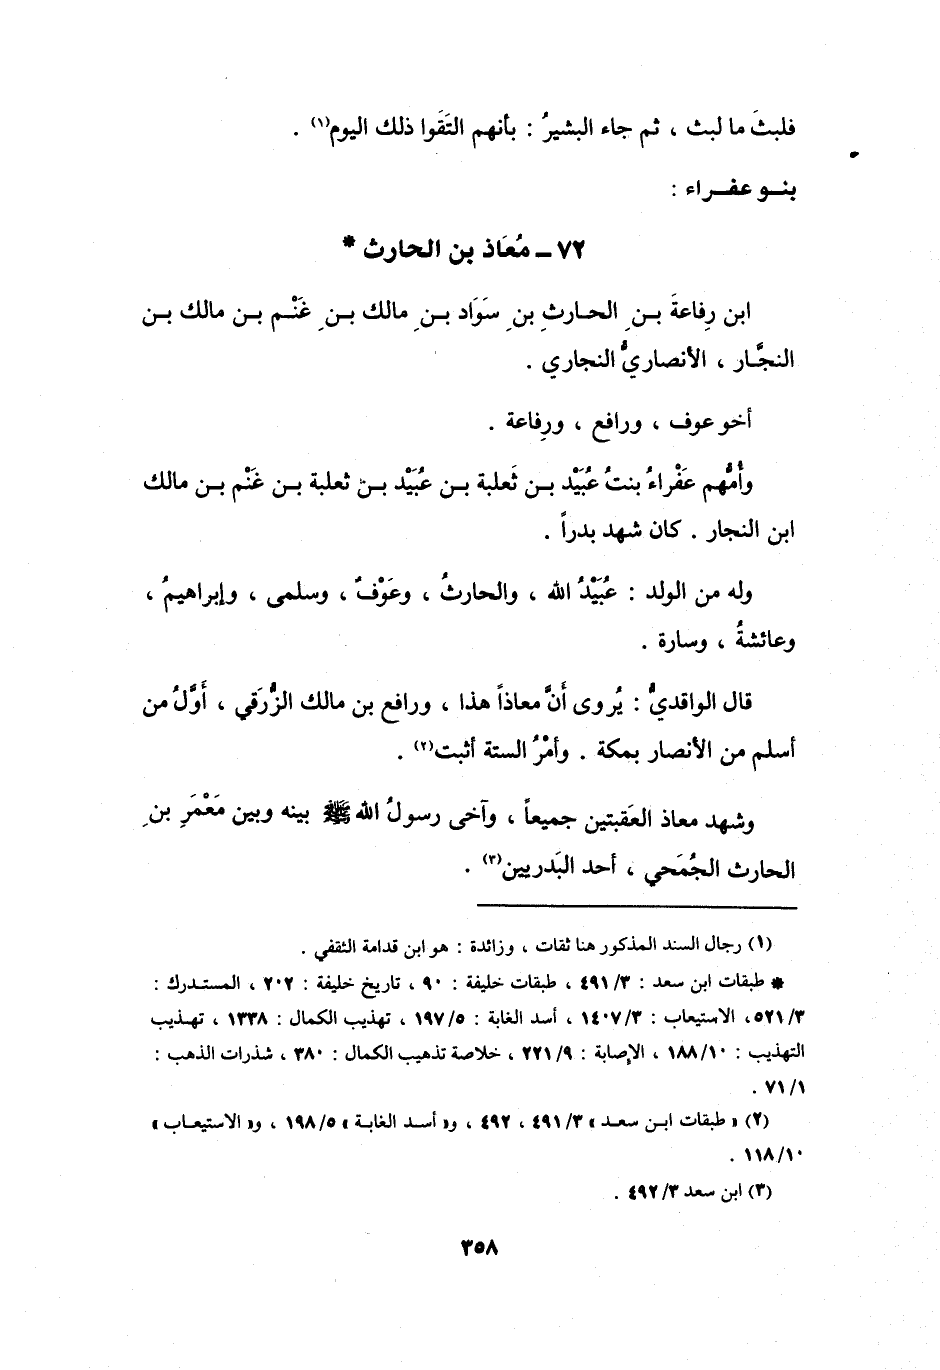 فلبثَ ما لبث ، ثم جاء البشيرُ : بأنهم التَقَوا ذلك اليوم(١) .
بنـو عفـراء :
٧٢ ـ مُعَاذ بن الحارث *
ابن رِفاعةَ بـن ِ الحـارثِ بن ِ سوَاد بـن ِ مالك بـن ِ غَنْـم بـن مالك بـن
النجَّـار ، الأنصاريُّ النجاري .
أخو عوف ، ورافع ، ورِفاعة .
وأُمُّهم عَفْراءُ بنتُ عُبَيْد بـن ثَعلبة بـن عُبَيْد بـن ثعلبة بـن غَنْم بـن مالك
ابن النجار . كان شهد بدراً .
وله من الولد : عُبَيْدُ الله ، والحارثُ ، وعَوْفٌ ، وسلمى ، وإبراهيمُ ،
وعائشةُ ، وسارة .
قال الواقديُّ : يُروى أنَّ معاذاً هذا ، ورافع بن مالك الزُّرَقي ، أوَّلُ من
أسلم من الأنصار بمكة . وأمْرُ الستة أثبت(٢) .
وشهد معاذ العَقبتين جميعاً ، وآخى رسولُ الله ﷺ بينه وبين مَعْمَرِ بن ِ
الحارث الجُمَحي ، أحد البَدريين(٣) .
(١) رجال السند المذكور هنا ثقات ، وزائدة : هو ابن قدامة الثقفي .
* طبقات ابن سعد : ٤٩١/٣ ، طبقات خليفة : ٩٠ ، تاريخ خليفة : ٢٠٢ ، المستـدرك :
٥٢١/٣، الاستيعاب : ١٤٠٧/٣ ، أسد الغابة : ١٩٧/٥ ، تهذيب الكمال : ١٣٣٨ ، تهـذيب
التهذيب : ١٨٨/١٠ ، الإصابة : ٢٢١/٩ ، خلاصة تذهيب الكمال : ٣٨٠ ، شذرات الذهب :
٧١/١ .
(٢) « طبقات ابـن سعـد » ٤٩١/٣ ، ٤٩٢ ، و« أسـد الغابـة » ١٩٨/٥ ، و« الاستيعـاب »
١١٨/١٠ .
(٣) ابن سعد ٤٩٢/٣ .
٣٥٨